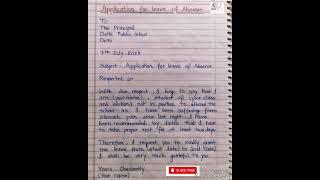 Application for leave of Absence
To
The Principal
Delhi Public School
Delhi
7th July, 
Subject: Application for leave of Absence
Respected sir
With due respect, I beg to say that I
am (your name), student of (your class
and section) not in position to attend the
school as I have been suffering from
stomach pain since last night. I have
been recommended by doctor that I have
to take proper rest for at least two days
Therefore, I request you to kindly grant
me leave from (start date) to (end date)
I shall be very much grateful to you
Yours Obediently
(Your name)
SUBSCRIBE